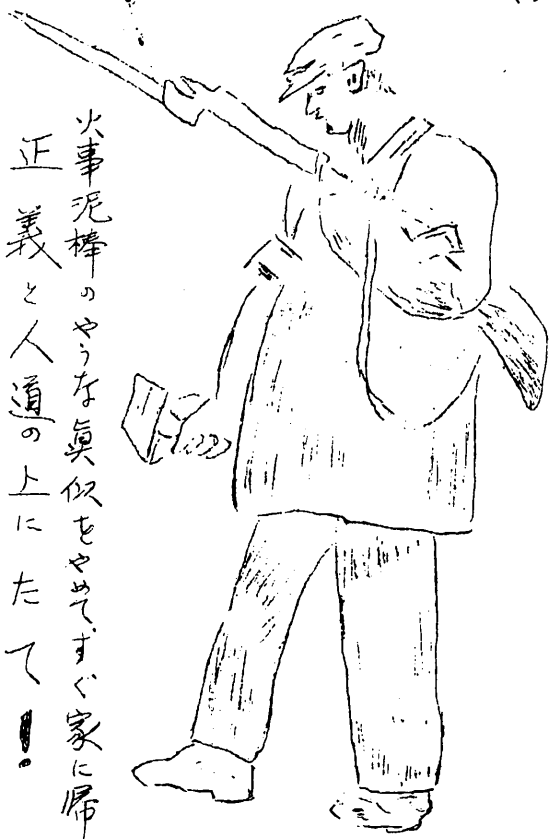 火事泥棒のやうな真似をやめて、すぐ家に帰
正義と人道の上にたて！